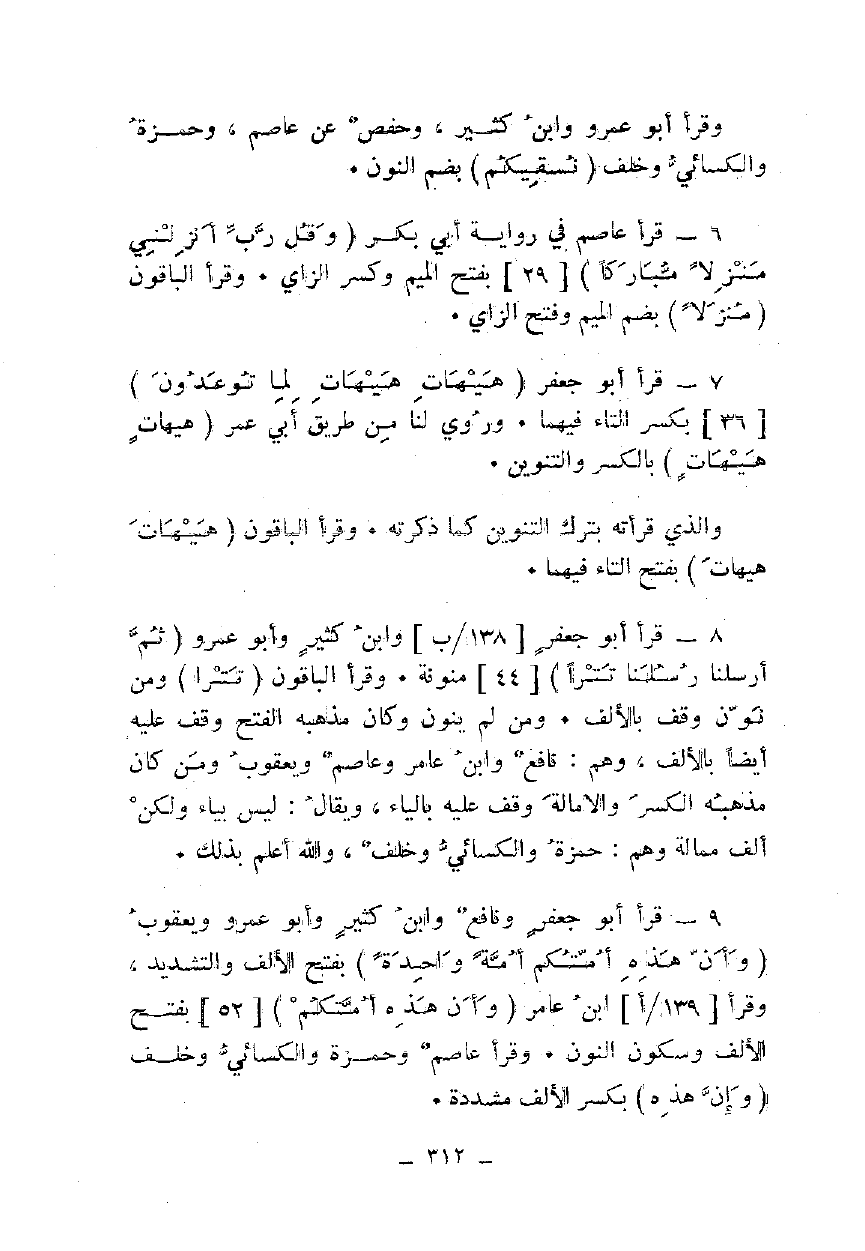 وقرأ أبو عمرو وابنُ كثــير ، وحفصٌ عن عاصم ، وحمــزةُ
والكسائيُّ وخلف ( نُسقِيكُم ) بضم النون ٠
٦ ــ قرأ عاصم في روايــة أبي بكــر ( وَقُل رَّبِّ أَنزِلْنِي
مَنْزِلاً مُبَارَكاً ) [ ٢٩ ] بفتح الميم وكسر الزاي ٠ وقرأ الباقون
( مُنزَلاً ) بضم الميم وفتح الزاي ٠
٧ ــ قرأ أبو جعفر ( هَيْهَاتِ هَيْهَاتِ لِمَا تُوعَدُونَ )
[ ٣٦ ] بكسر التاء فيهما ٠ ورُوي لنا مِن طريق أبي عمر ( هيهاتٍ
هَيْهَاتٍ ) بالكسر والتنوين ٠
والذي قرأته بترك التنوين كما ذكرته ٠ وقرأ الباقون ( هَيْهَاتَ
هيهاتَ ) بفتح التاء فيهما ٠
٨ ــ قرأ أبو جعفرٍ [ ١٣٨/ب ] وابنُ كثيرٍ وأبو عمرو ( ثُمَّ
أرسلنا رُسُلَنَا تَتْراً ) [ ٤٤ ] منونة ٠ وقرأ الباقون ( تَتْرا ) ومن
نَوّن وقف بالألف ٠ ومن لم ينون وكان مذهبه الفتح وقف عليه
أيضاً بالألف ، وهم : نافعٌ وابنُ عامر وعاصمٌ ويعقوبُ ومَن كان
مذهبُه الكسرَ والامالةَ وقف عليه بالياء ، ويقالُ : ليس بياء ولكنْ
ألف ممالة وهم : حمزةُ والكسائيُّ وخلفٌ ، والله أعلم بذلك ٠
٩ ــ قرأ أبو جعفرٍ ونافعٌ وابنُ كثيرٍ وأبو عمرو ويعقوبُ
( وَأَنّ هَذِهِ أُمّتُكُم أُمَّةً وَاحِدَةً ) بفتح الألف والتشديد ،
وقرأ [ ١٣٩/أ ] ابنُ عامر ( وَأَن هَذِه أُمَّتُكُمْ ) [ ٥٢ ] بفتــح
الألف وسكون النون ٠ وقرأ عاصمٌ وحمــزة والكسائيُّ وخلــف
( وَإِنَّ هذِه ) بكسر الألف مشددة ٠
ــ ٣١٢ ــ